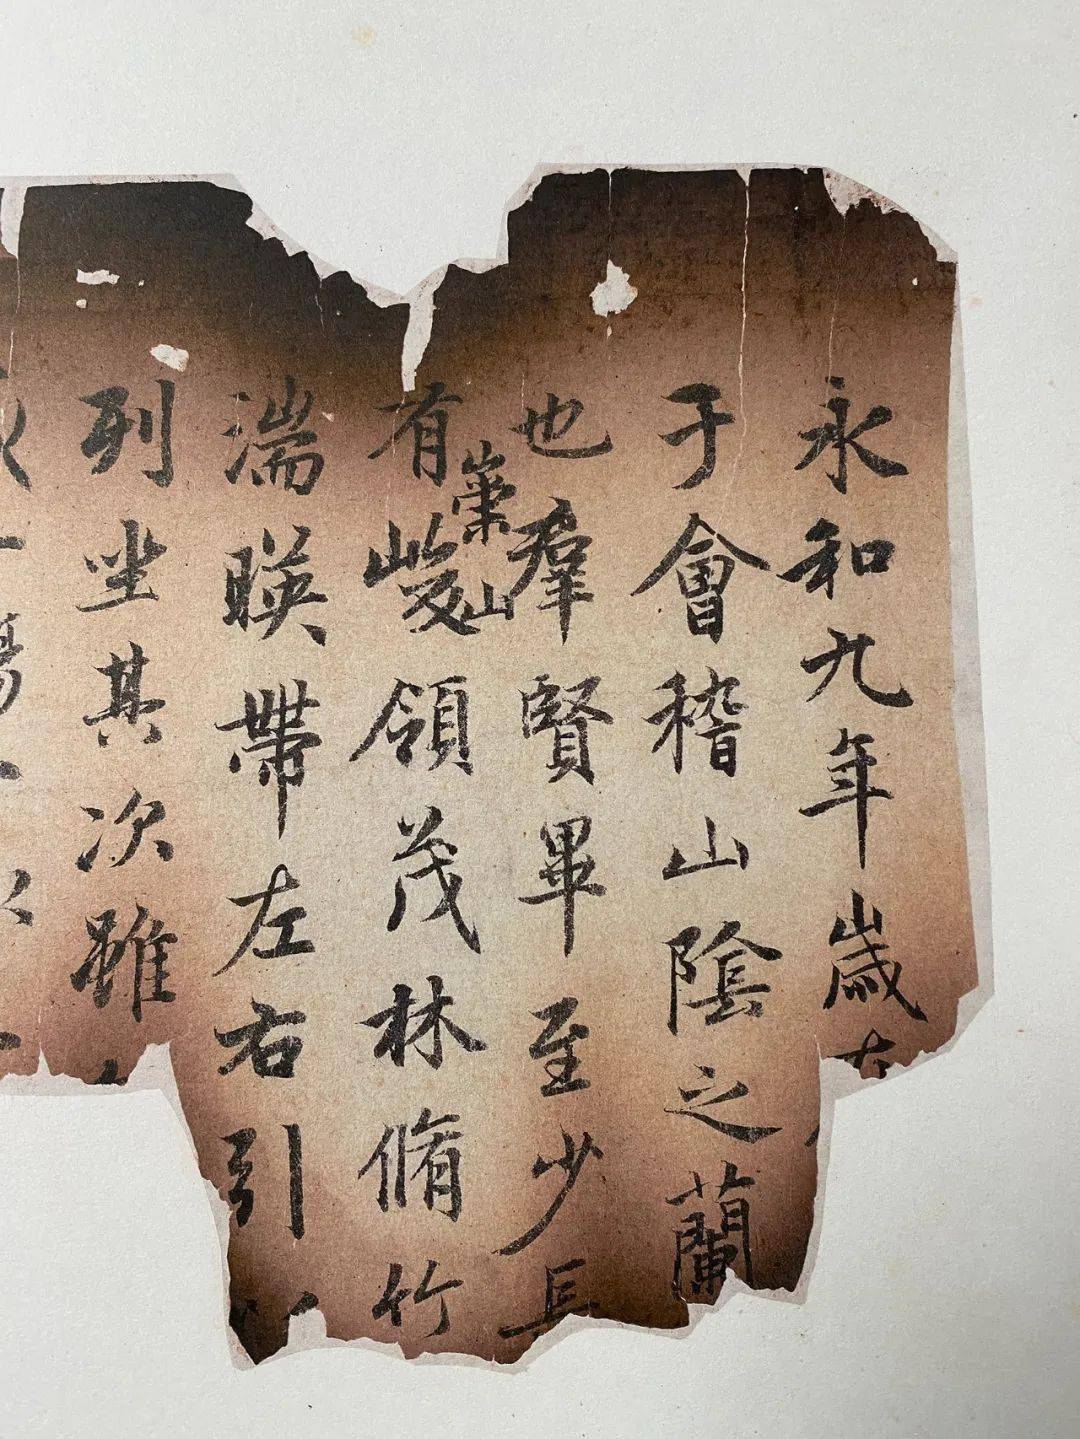 永和九年歲在
于會稽山陰之蘭
也羣賢畢至少長
崇山
有峻領茂林脩竹
湍暎帶左右引
列坐其次雖